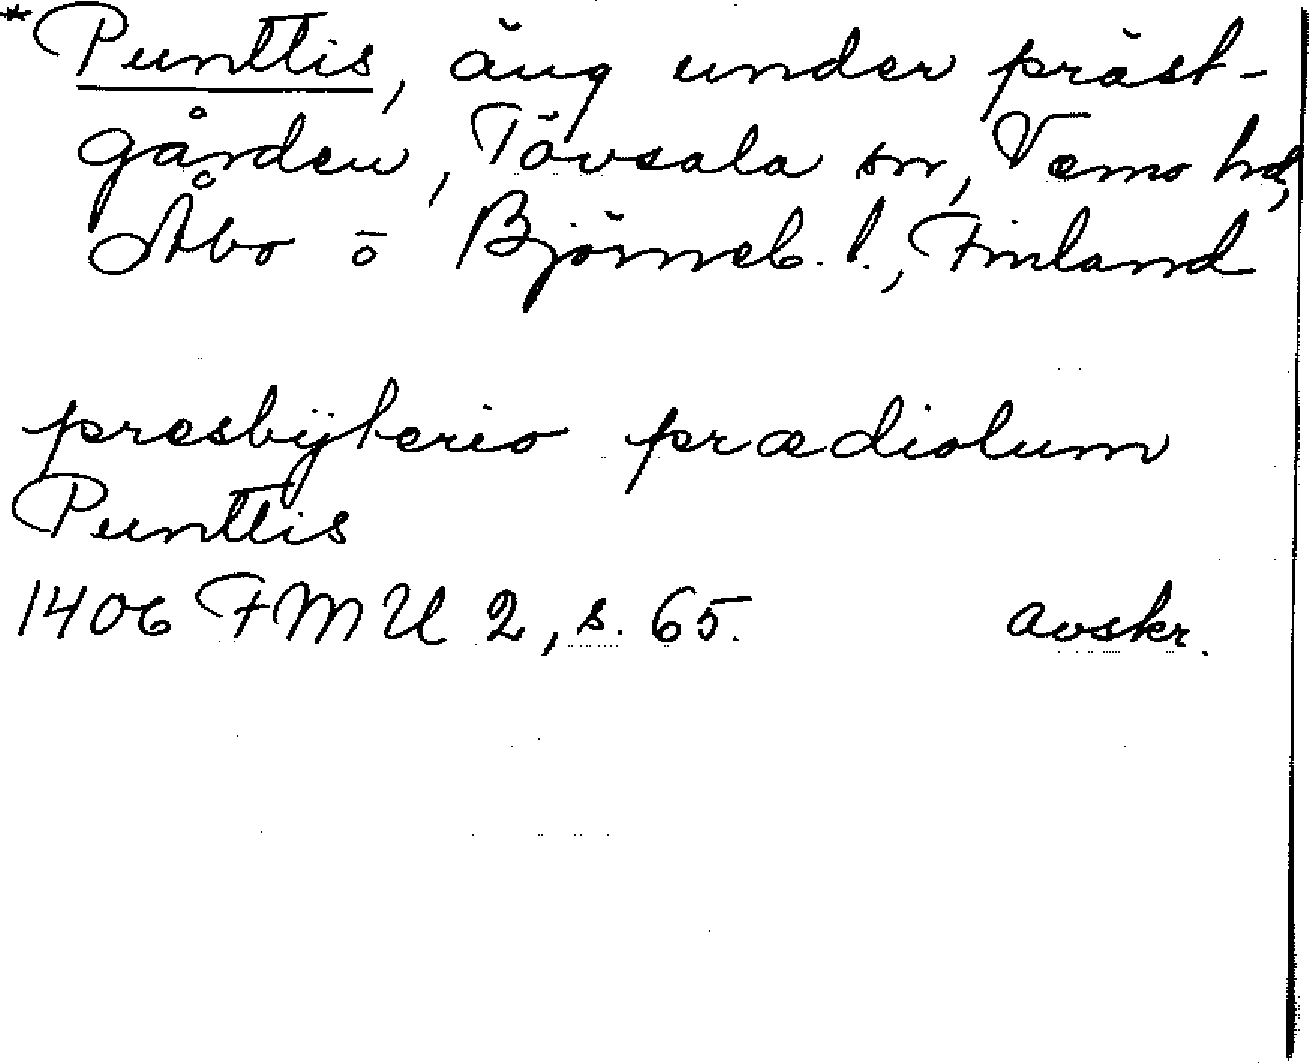 *Punttis, äng under präst-
gården, Tövsala sn, Vemo hd,
Åbo o Björneb. l., Finland
presbÿterio prædiolum
Punttis
1406 FMU 2, s. 65. avskr.